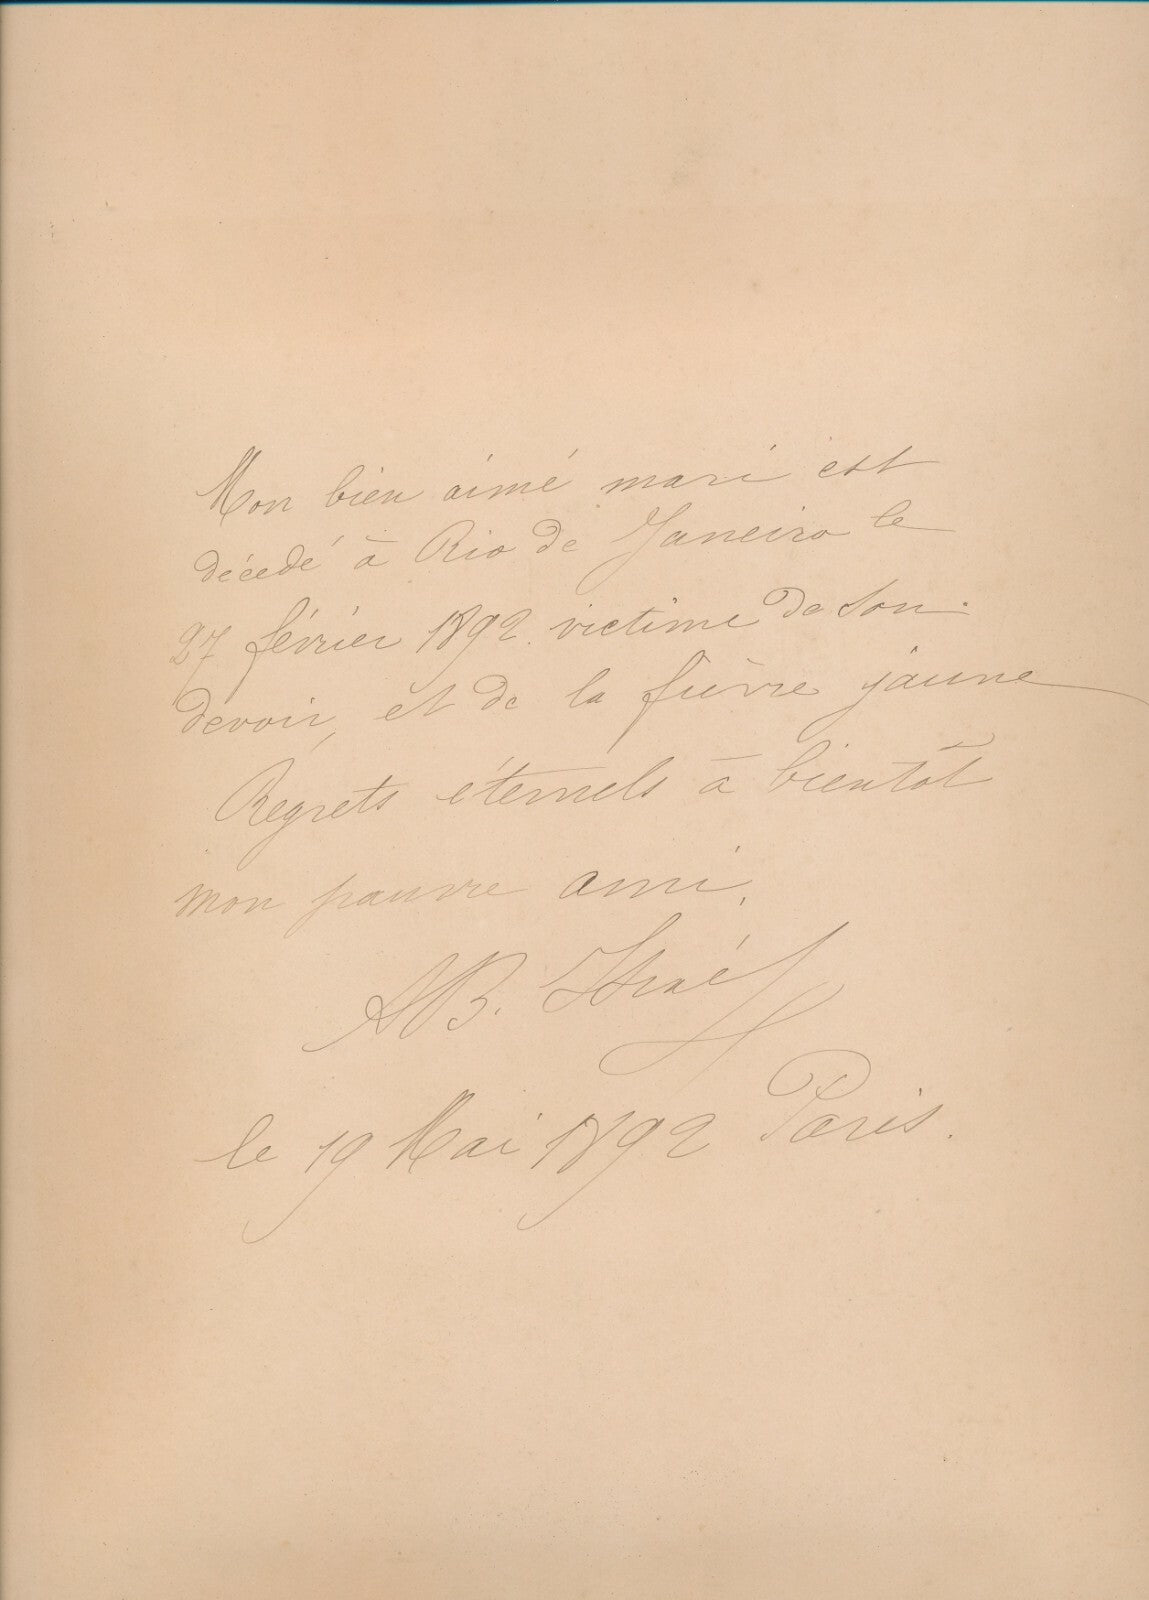 Mon bien aimé mari est
décedé à Rio de Janeiro le
27 février 1892. victime de son
devoir, et de la fièvre jaune
Regrets éternels à bientôt
mon pauvre ami.
AB. Israël
le 19 Mai 1892 Paris.